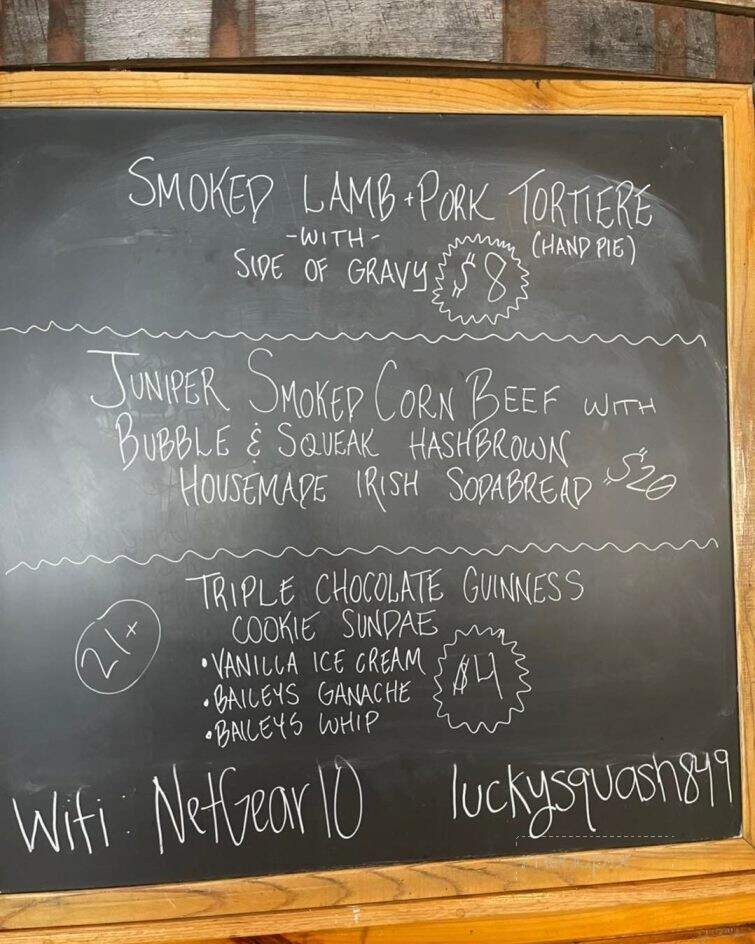 SMOKED LAMB + PORK TORTIERE
-WITH- (HAND PIE)
SIDE OF GRAVY $8
JUNIPER SMOKED CORN BEEF WITH
BUBBLE & SQUEAK HASHBROWN
HOUSEMADE IRISH SODABREAD $20
TRIPLE CHOCOLATE GUINNESS
COOKIE SUNDAE
21+
•VANILLA ICE CREAM $4
•BAILEYS GANACHE
•BAILEYS WHIP
Wifi: NetGear10 luckysquash849